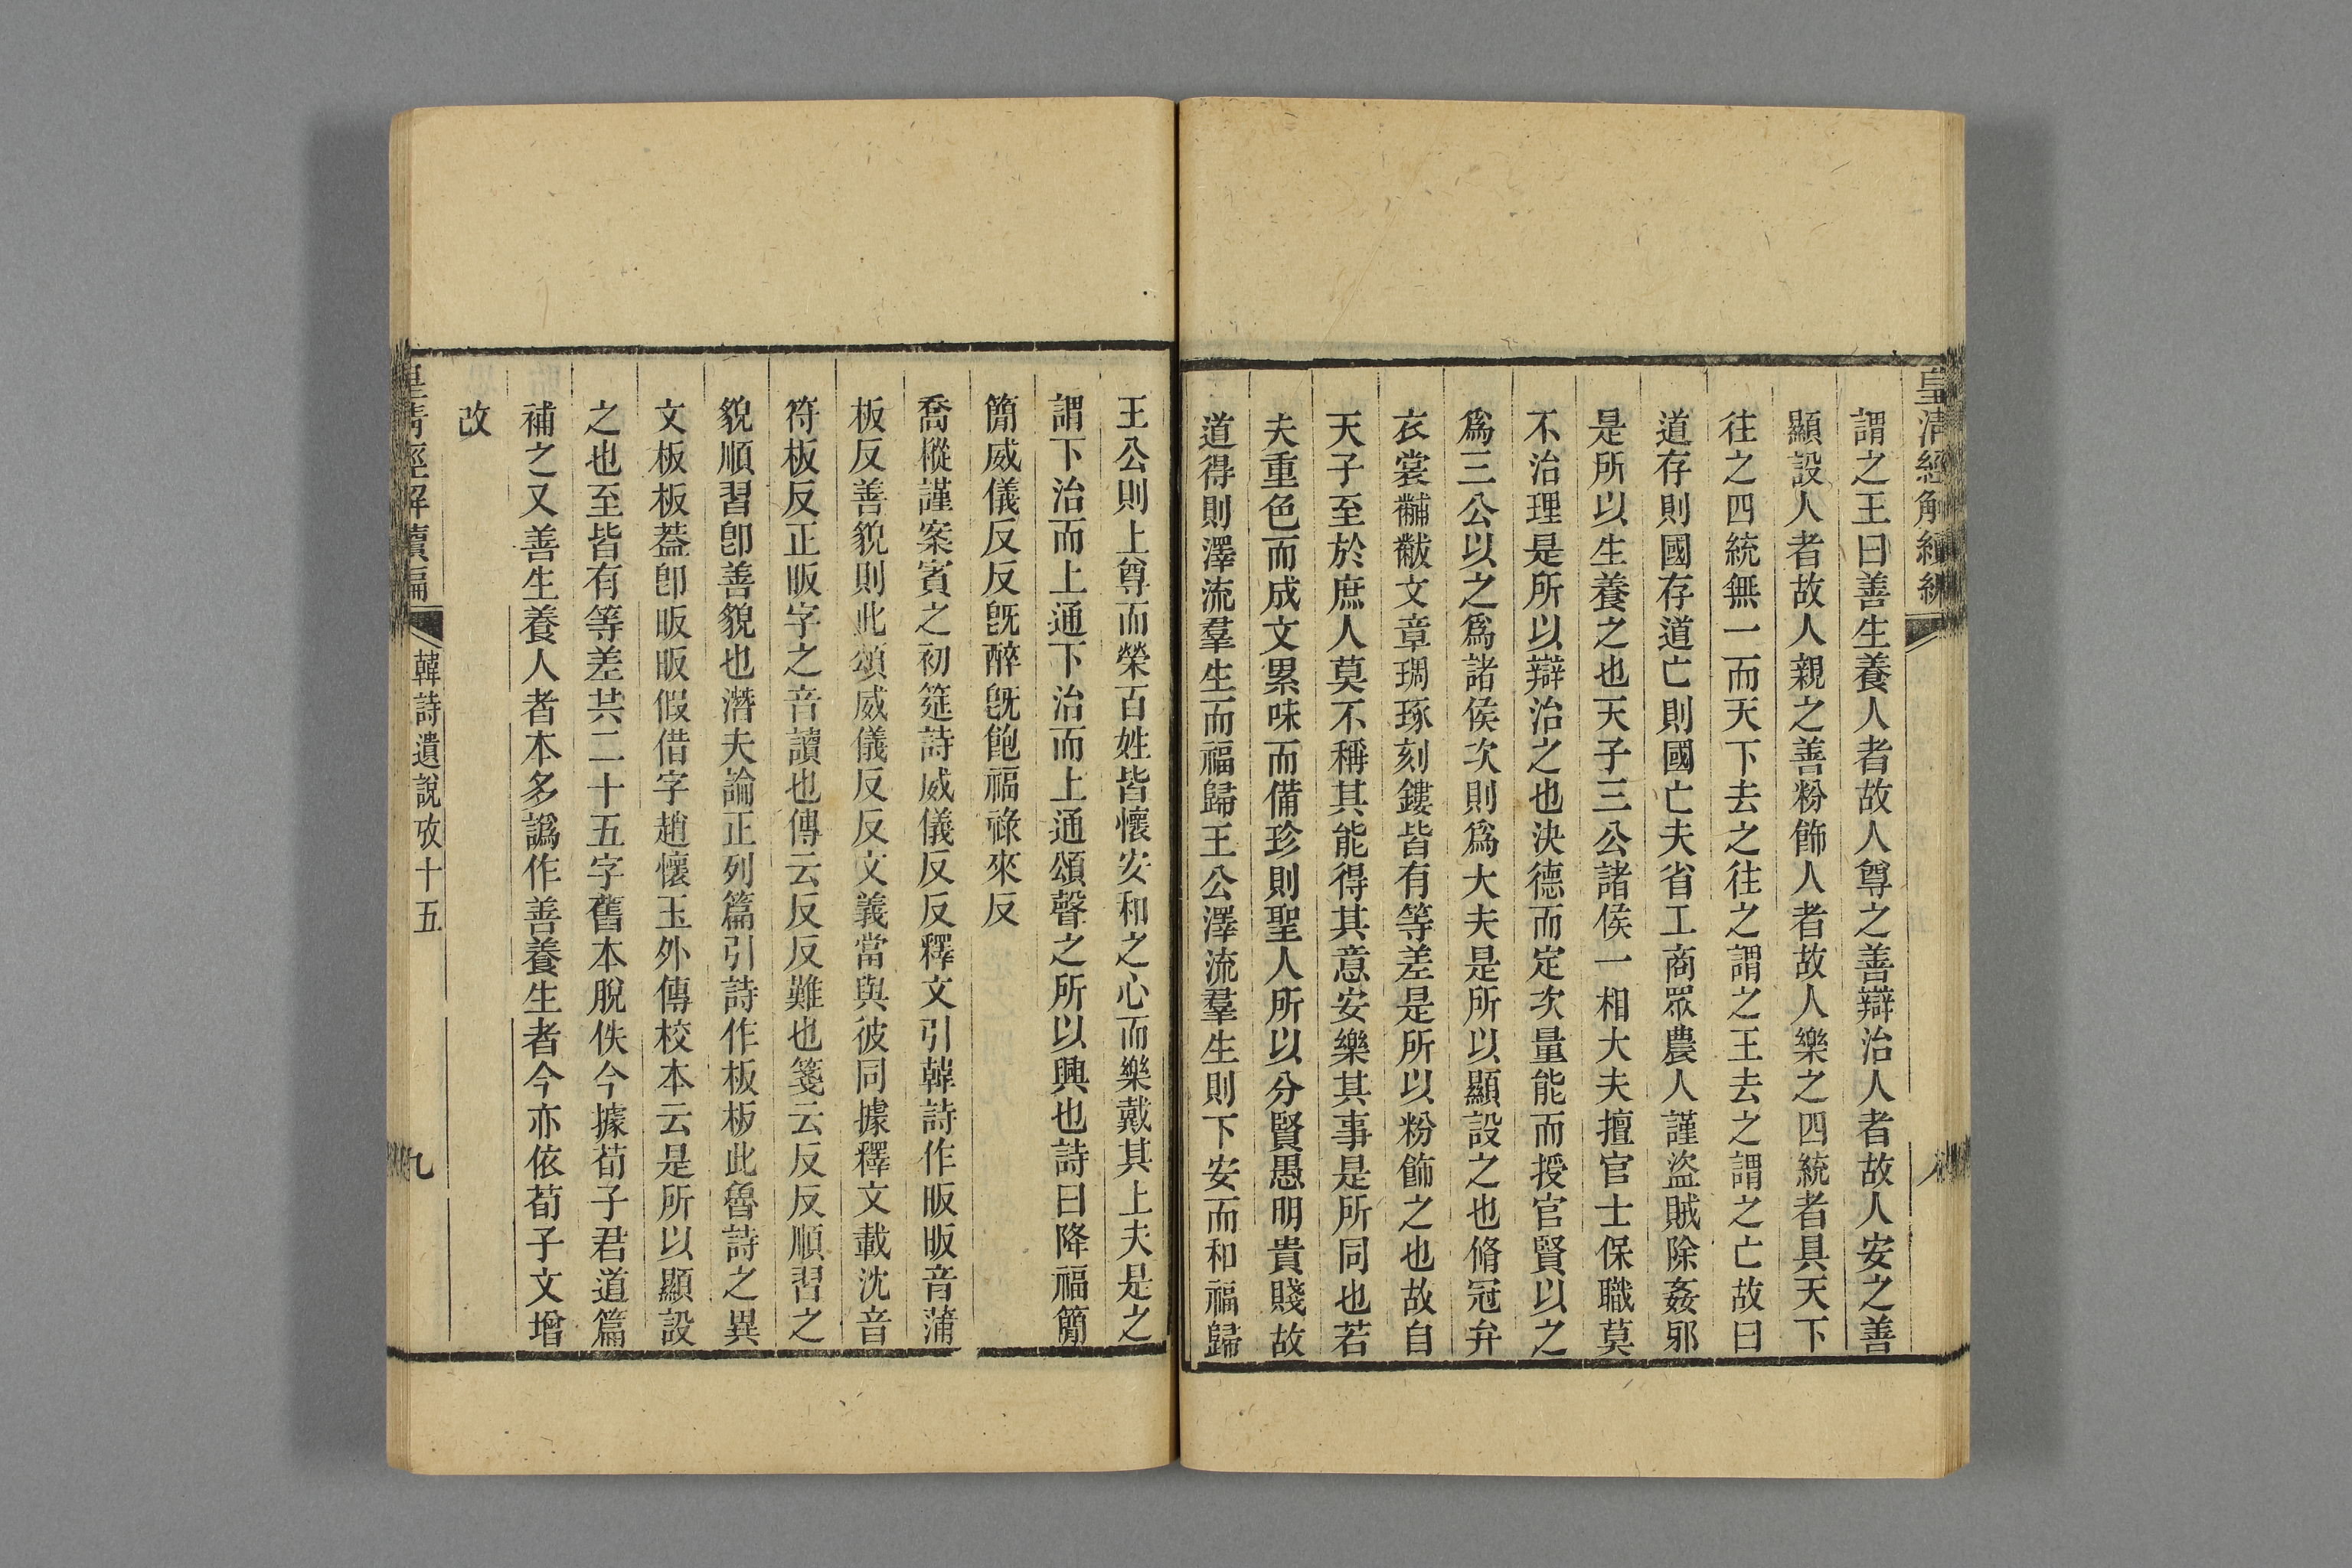 皇清經解續編
謂之王曰善生養人者故人尊之善辯治人者故人安之善
顯設人者故人親之善粉飾人者故人樂之四統者具天下
往之四統無一而天下去之往之謂之王去之謂之亡故曰
道存則國存道亡則國亡夫省工商眾農人謹盜賊除姦邪
是所以生養之也天子三公諸侯一相大夫擅官士保職莫
不治理是所以辯治之也決德而定次量能而授官賢以之
爲三公以之爲諸侯次則爲大夫是所以顯設之也脩冠弁
衣裳黼黻文章琱琢刻鏤皆有等差是所以粉飾之也故自
天子至於庶人莫不稱其能得其意安樂其事是所同也若
夫重色而成文累味而備珍則聖人所以分賢愚明貴賤故
道得則澤流羣生而福歸王公澤流羣生則下安而和福歸
王公則上尊而榮百姓皆懷安和之心而樂戴其上夫是之
謂下治而上通下治而上通頌聲之所以興也詩曰降福簡
簡威儀反反旣醉旣飽福祿來反
喬樅謹案賓之初筵詩威儀反反釋文引韓詩作昄昄音蒲
板反善貌則此頌威儀反反文義當與彼同據釋文載沈音
符板反正昄字之音讀也傳云反反難也箋云反反順習之
貌順習卽善貌也潛夫論正列篇引詩作板板此魯詩之異
文板板葢卽昄昄假借字趙懷玉外傳校本云是所以顯設
之也至皆有等差共二十五字舊本脫佚今據荀子君道篇
補之又善生養人者本多譌作善養生者今亦依荀子文增
改
皇清經解續編
韓詩遺說攷十五
九